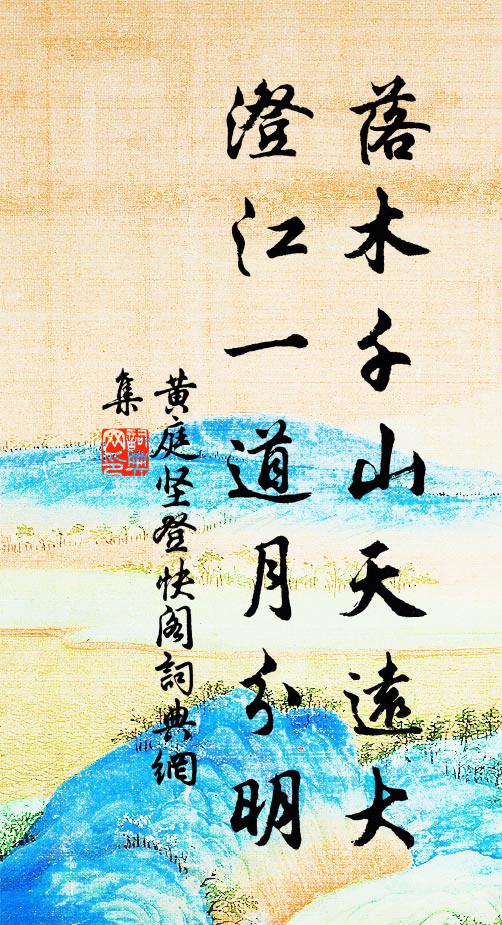 落木千山天遠大
澄江一道月分明
黄庭坚登快阁詞典網
集